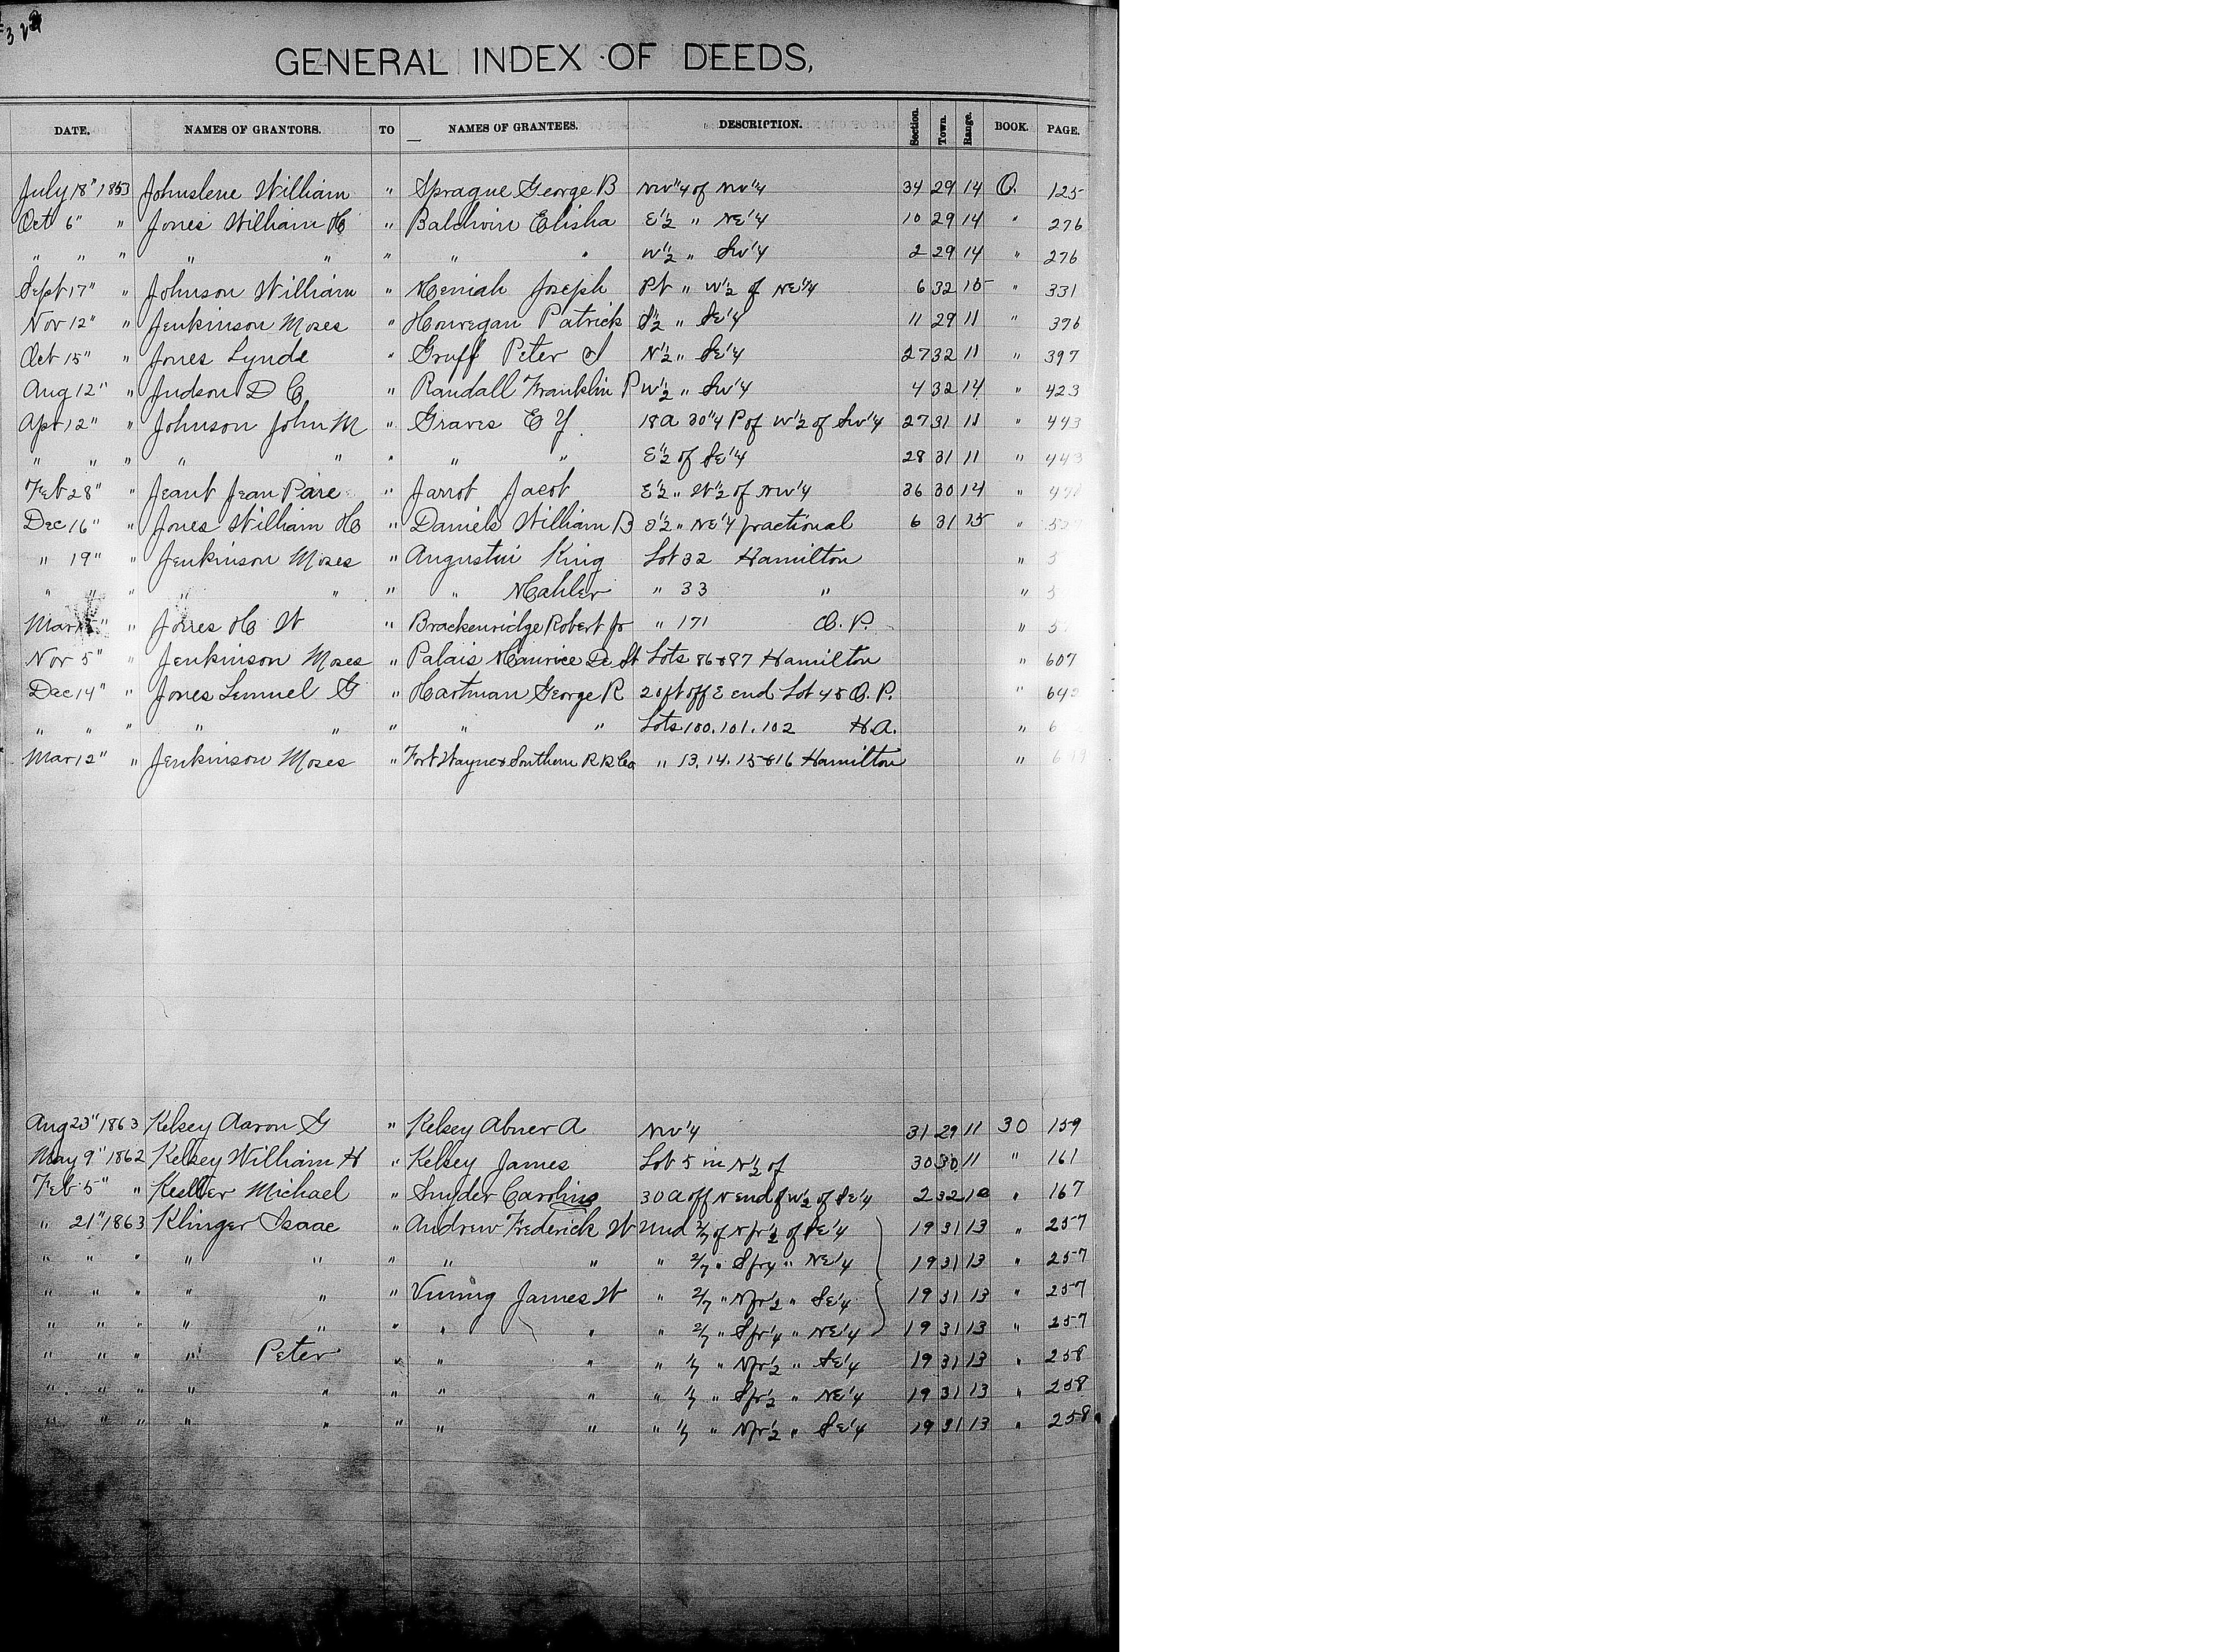 GENERAL INDEX OF DEEDS,
DATE. NAMES OF GRANTORS. TO NAMES OF GRANTEES. DESCRIPTION. Section. Town. Range. BOOK. PAGE.
July 18" 1853 Johnslene William " Sprague George B NW 1/4 of NW 1/4 34 29 14 O. 125
Oct 6" " Jones William H " Baldwin Elisha E 1/2 " NE 1/4 10 29 14 " 276
" " " " " " " " W 1/2 " SW 1/4 2 29 14 " 276
Sept 17" " Johnson William " Meniah Joseph Pt " W 1/2 of NE 1/4 6 32 15 " 331
Nov 12" " Jenkinson Moses " Houregan Patrick S 1/2 " SE 1/4 11 29 11 " 396
Oct 15" " Jones Lynde " Gruff Peter S N 1/2 " SE 1/4 27 32 11 " 397
Aug 12" " Judson D C " Randall Franklin P W 1/2 " SW 1/4 4 32 14 " 423
Apr 12" " Johnson John M " Graves E Y. 18 A 30 1/4 P of W 1/2 of SW 1/4 27 31 11 " 443
" " " " " " " " E 1/2 of SE 1/4 28 31 11 " 443
Feb 28" " Jeant Jean Paire " Jarrot Jacob E 1/2 " W 1/2 of NW 1/4 36 30 14 "
Dec 16" " Jones William H " Daniels William B S 1/2 " NE 1/4 fractional 6 31 15 "
" 19" " Jenkinson Moses " Augustin King Lot 32 Hamilton "
" " " " " " " Mahler " 33 " "
Mar " Jones H W " Brackenridge Robert Jr " 171 O. P. "
Nov 5" " Jenkinson Moses " Palais Maurice De St Lots 86 & 87 Hamilton " 607
Dec 14" " Jones Lemuel G " Hartman George R 20 ft off E end Lot 45 O. P. " 642
" " " " " " " " Lots 100. 101. 102 H. A. "
Mar 12" " Jenkinson Moses " Fort Wayne & Southern R R Co " 13. 14. 15 & 16 Hamilton "
Aug 23" 1863 Kelsey Aaron G " Kelsey Abner A NW 1/4 31 29 11 30 159
May 9" 1862 Kelsey William H " Kelsey James Lot 5 in N 1/2 of 30 30 11 " 161
Feb 5" " Kesller Michael " Snyder Caroline 30 A off N end of W 1/2 of SE 1/4 2 32 12 " 167
" 21" 1863 Klinger Isaac " Andrew Frederick W Und 2/7 of N fr 1/2 of SE 1/4 19 31 13 " 257
" " " " " " " " " 2/7 " S fr 1/4 " NE 1/4 19 31 13 " 257
" " " " " " Vining James W " 2/7 " N fr 1/2 " SE 1/4 19 31 13 " 257
" " " " " " " " " 2/7 " S fr 1/4 " NE 1/4 19 31 13 " 257
" " " " Peter " " " " 1/7 " N fr 1/2 " SE 1/4 19 31 13 " 258
" " " " " " " " " 1/7 " S fr 1/2 " NE 1/4 19 31 13 " 258
" " " " " " " " " 1/7 " N fr 1/2 " SE 1/4 19 31 13 " 258